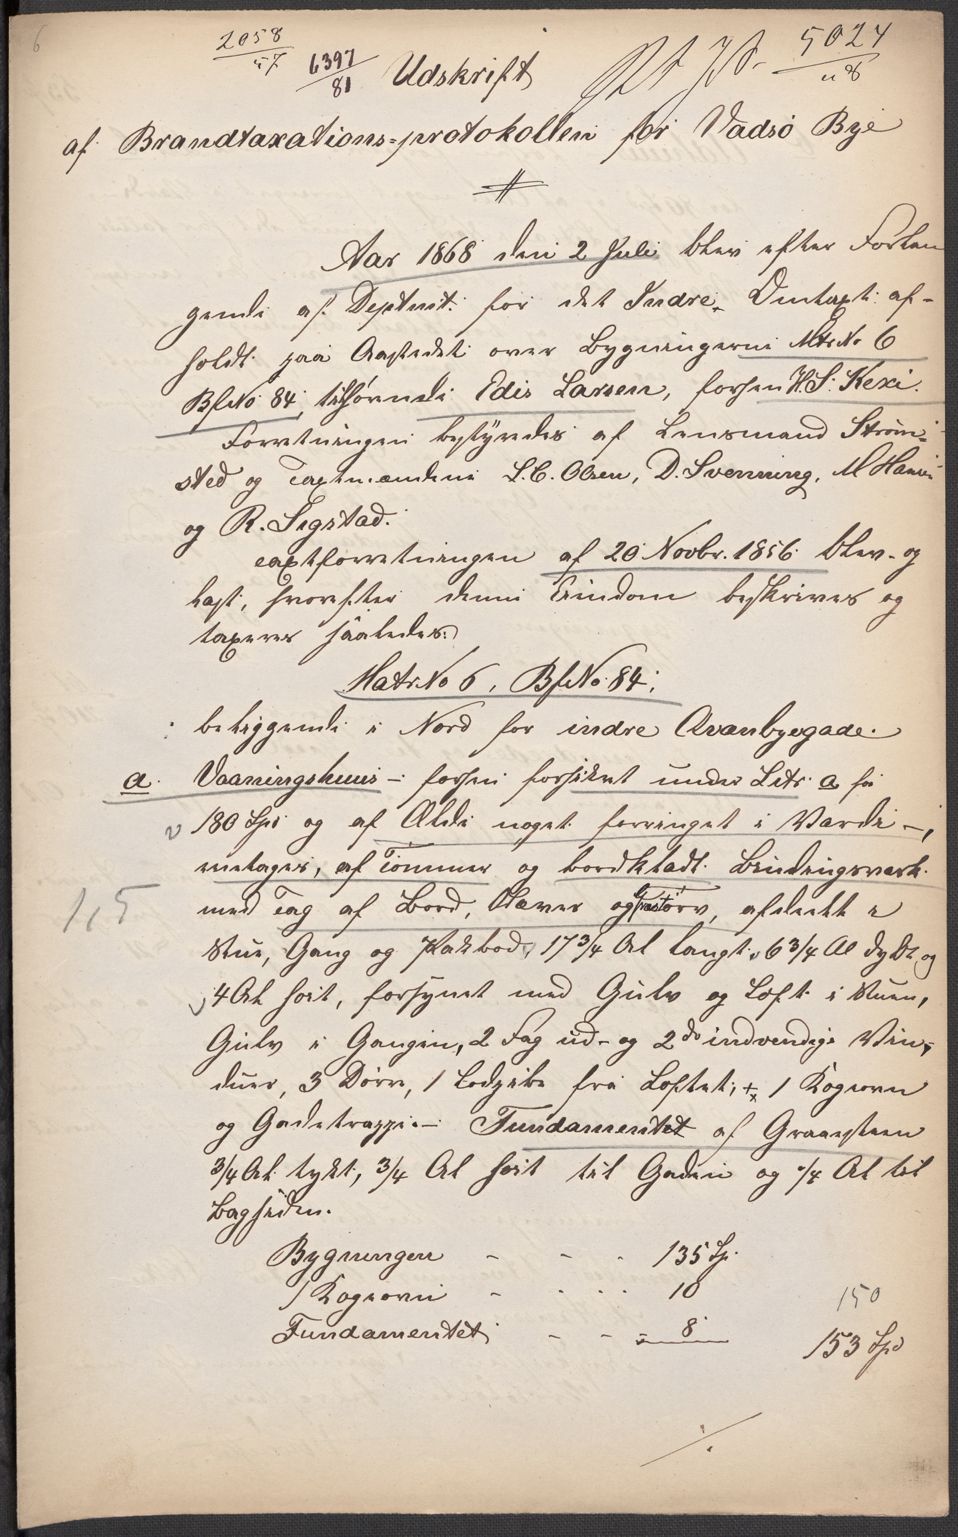 6
2058/57
6397/81
5024/
Udskrift
af Brandtaxations-protokollen for Vadsö Bye
Aar 1868 den 2 Juli blev efter Forlan
gende af Deptmt. for det Indre, Omtaxt af-
holdt paa Aastedet over Bygningerne Mtr No 6
Bf No 84, tilhørende Edis Larsen, forhen H. S. Kexi.
Forretningen bestyredes af Lensmand Strøm-
sted og Taxtmændene L. C. Olsen, D. Svenning, M Hansen
og R. Sigstad.
Taxtforretningen af 20 Novbr. 1856 blev og
læst, hvorefter denne Eiendom beskrives og
taxeres saaledes:
Matr. No 6, Bf No 84,
beliggende i Nord for indre Qvænbyegade.
a. Vaaningshuus - forhen forsikret under Litr. a for
180 Spd og af Ælde noget forringet i Værdi -,
metages, af Tømmer og bordklædt Bindingsværk
med Tag af Bord, Næver og Græstørv, afdeelt i
Stue, Gang og Kakbod, 17 3/4 Al langt, 6 3/4 Al dybt og
4 Al høit, forsynet med Gulv og Loft i Stuen,
Gulv i Gangen, 2 Fag ud- og 2 do indvendige Vin-
duer, 3 Døre, 1 Lodpibe fra Loftet, 1 Kogeovn
og Gadetrappe. - Fundamentet af Graasteen
3/4 Al tykt, 3/4 Al høit til Gaden og 1/4 Al til
Bagsiden.
1,5
Bygningen - - - 135 Sp.
1 Kogeovn - - - 10
Fundamentet - - - 8
150
153 Spd